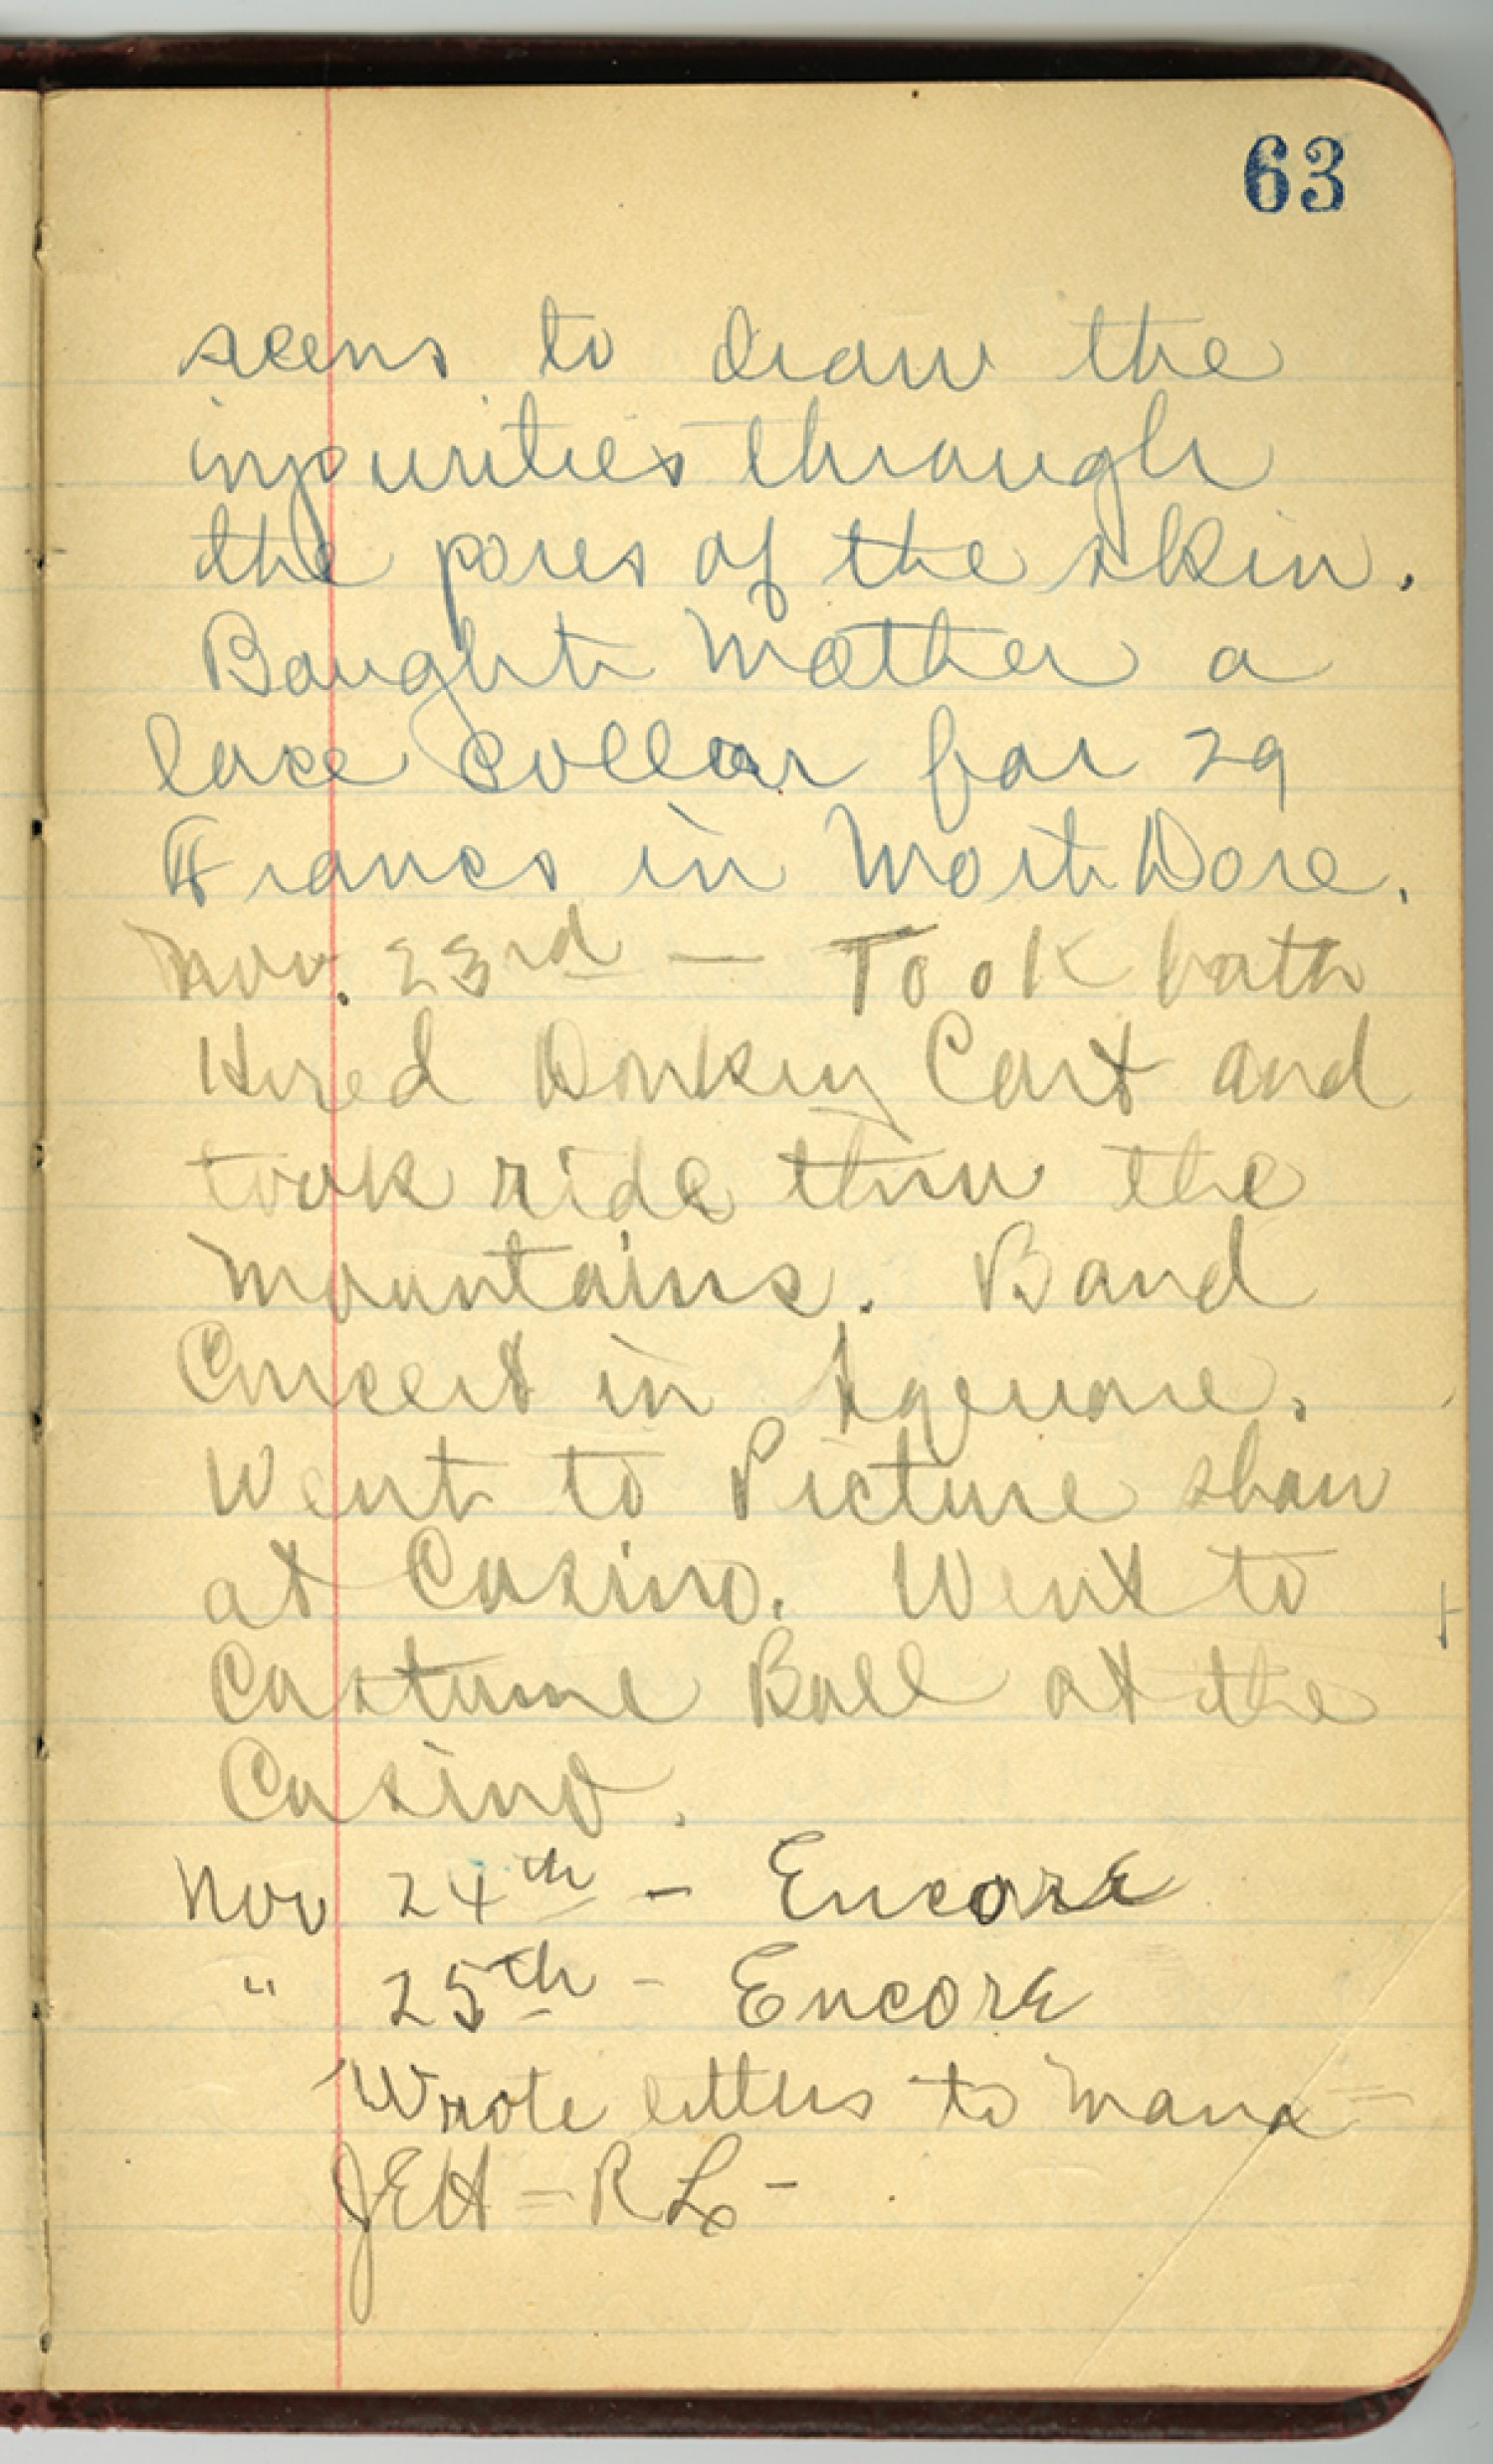 63
seems to draw the
impurities through
the pores of the skin.
Bought Mother a
lace collar for 29
Francs in Mort Dore.
Nov. 23rd — Took bath
Hired Donkey Cart and
took ride thru the
mountains. Band
Concert in Square.
Went to Picture show
at Casino. Went to
Costume Ball at the
Casino.
Nov 24th - Encore
" 25th - Encore
Wrote letters to Mama =
JEH = RL -